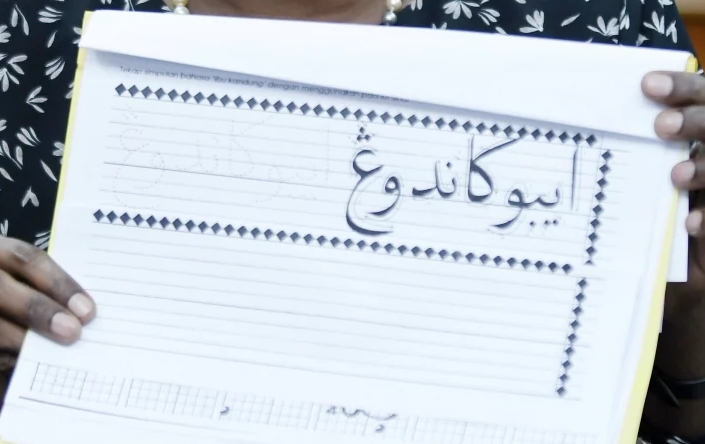 Tekap simpulan bahasa 'ibu kandung' dengan menggunakan
ايبو کاندوڠ
ايبو کاندوڠ